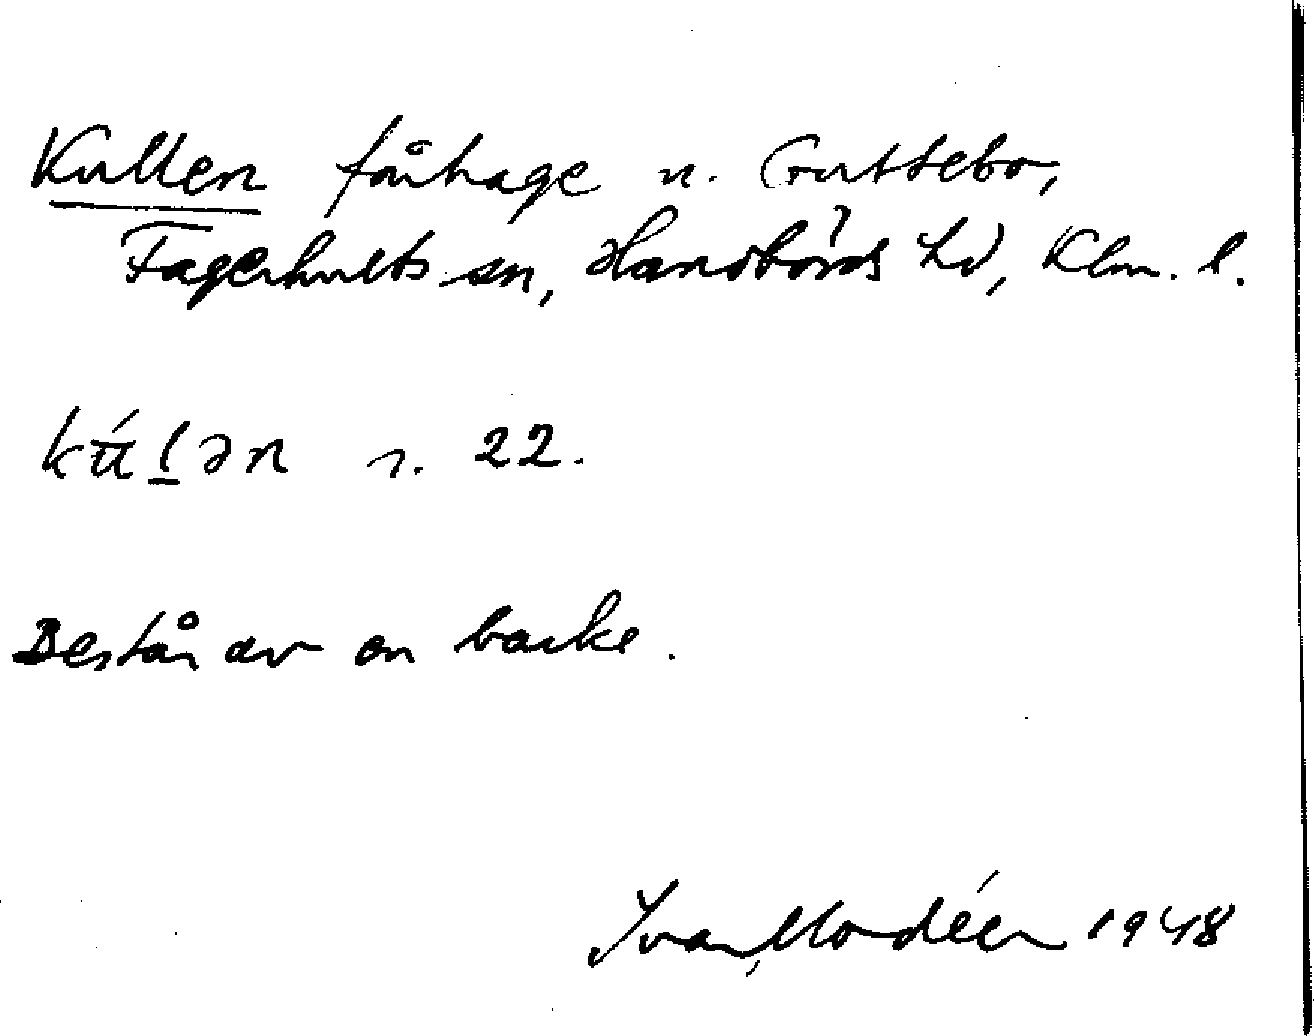 Kullen fårhage u. Guttebo,
Fagerhults sn, Handbörds hd, Klm. l.
kú̵l̲ən r. 22.
Består av en backe.
Ivar Modéer 1948